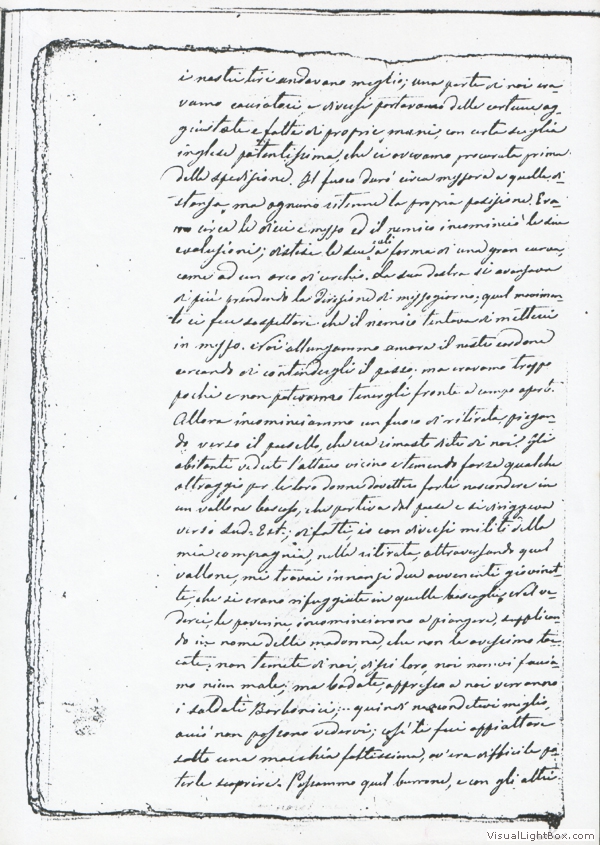 i nostri tiri andavano meglio; una parte di noi era-
vamo cacciatori, e diversi portavamo delle cartucce ag-
giustate e fatte di proprie mani, con certa scaglia
inglese potentissima, che ci avevamo procurata prima
della spedizione. Il fuoco durò circa mezzora a quella di-
stanza, ma ognuno ritenne la propria posizione. Era-
no circa le dieci e mezzo ed il nemico incominciò le sue
evoluzioni; distese le sue ali a forma di una gran curva,
come ad un arco di cerchio. La sua destra si avanzava
di più prendendo la direzione di mezzogiorno; quel movimen-
to ci fece sospettare che il nemico tentava di metterci
in mezzo. Noi allungammo ancora il nostro cordone
cercando di contendergli il passo. ma eravamo troppo
pochi e non potevamo tenergli fronte a campo aperto.
Allora incominciammo un fuoco di ritirata, piegan-
do verso il paesello, che era rimasto dietro di noi. Gli
abitanti veduto l'attacco vicino e temendo forse qualche
oltraggio per le loro donne dovettero farle nascondere in
un vallone boscoso, che partiva dal paese e si dirigeva
verso Sud-Est; difatti, io con diversi militi della
mia compagnia, nella ritirata, attraversando quel
vallone, mi trovai innanzi due avvenenti giovinet-
te, che si erano rifuggiate in quelle boscaglie, e al ve-
derci, le poverine, incominciarono a piangere, supplican-
do in nome della madonna, che non le avessimo toc-
cate, non temete di noi, dissi loro, noi non vi faccia-
mo niun male; ma badate, appresso a noi verranno
i soldati Borbonici; quindi nascondetevi meglio,
acciò non possono vedervi; così le feci appiattare
sotto una macchia foltissima, ov'era difficile po-
terle scoprire. Passammo quel burrone, e con gli altri
VisualLightBox.com